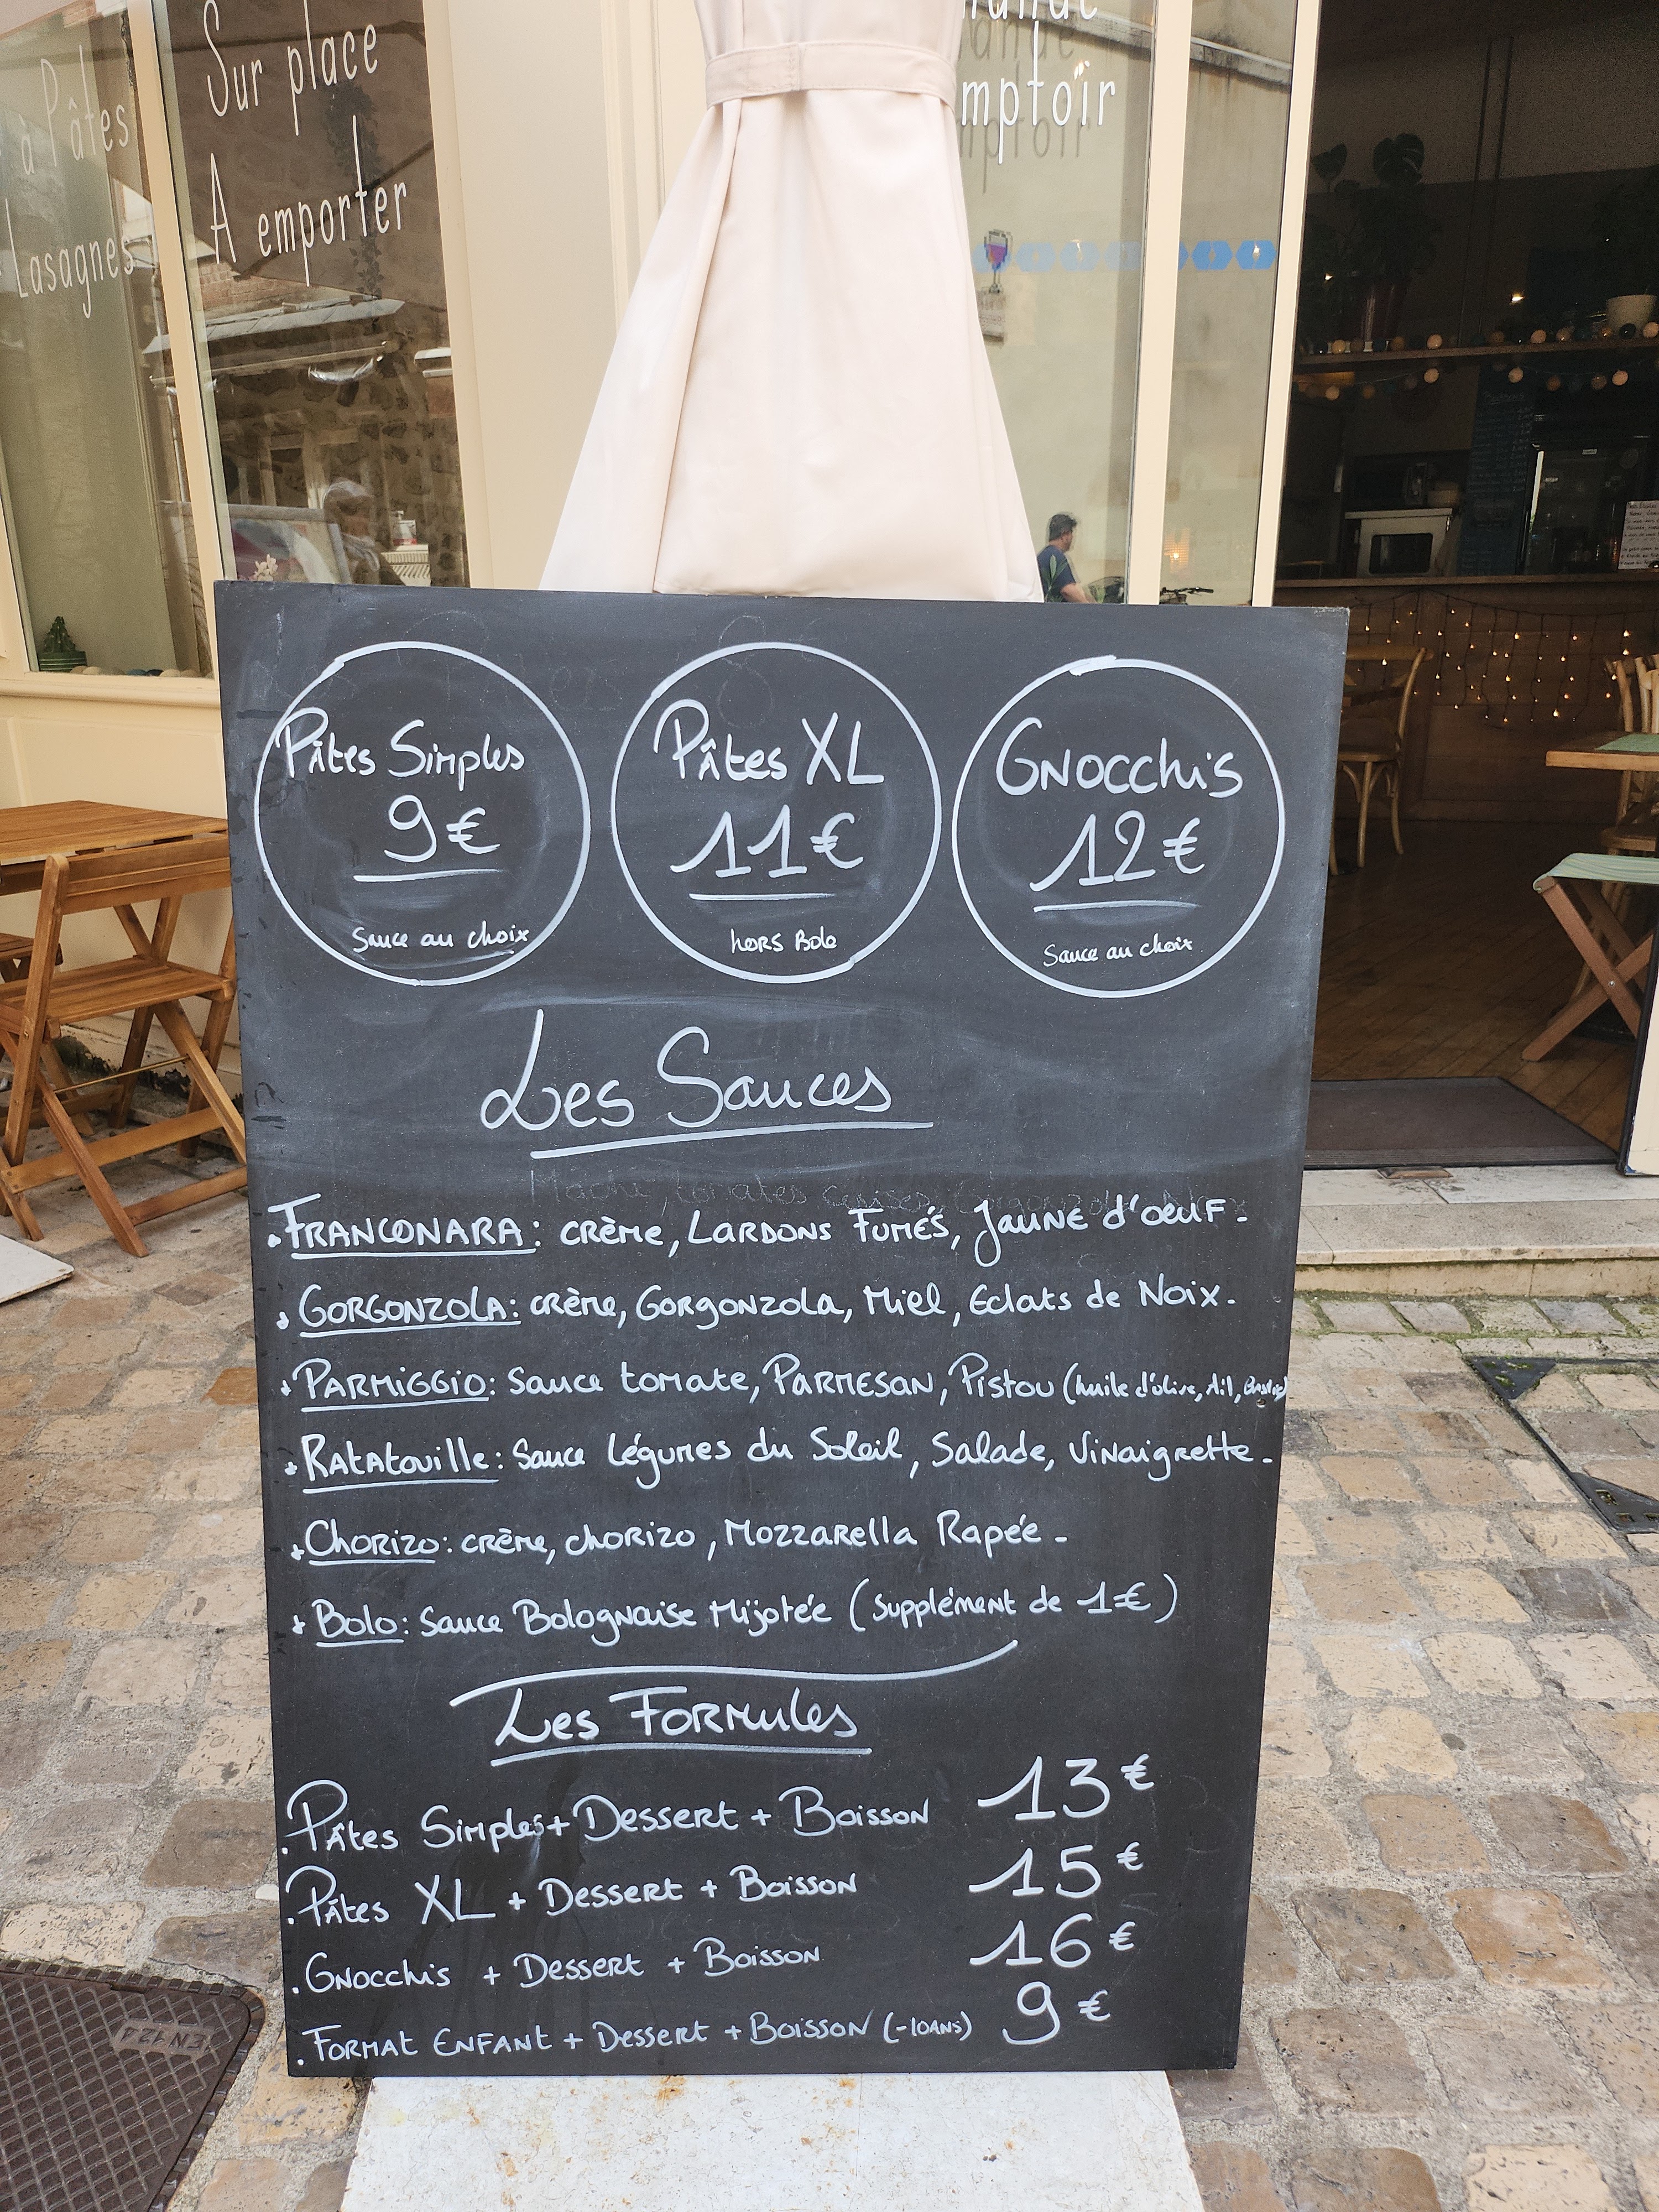 à Pâtes
Lasagnes
Sur place
A emporter
mptoir
Pâtes Simples
9€
Sauce au choix
Pâtes XL
11€
hors Bolo
Gnocchis
12€
Sauce au choix
Les Sauces
Franconara : crème, Lardons Fumés, Jaune d'oeuf.
Gorgonzola : crème, Gorgonzola, Miel, Eclats de Noix.
Parmiggio : Sauce tomate, Parmesan, Pistou (huile d'olive, Ail,
Ratatouille : Sauce Légumes du Soleil, Salade, Vinaigrette.
Chorizo : crème, chorizo, Mozzarella Rapée -
Bolo : Sauce Bolognaise Mijotée (supplément de 1€)
Les Formules
Pâtes Simples + Dessert + Boisson 13€
Pâtes XL + Dessert + Boisson 15€
Gnocchis + Dessert + Boisson 16€
Format Enfant + Dessert + Boisson (-10ans) 9€